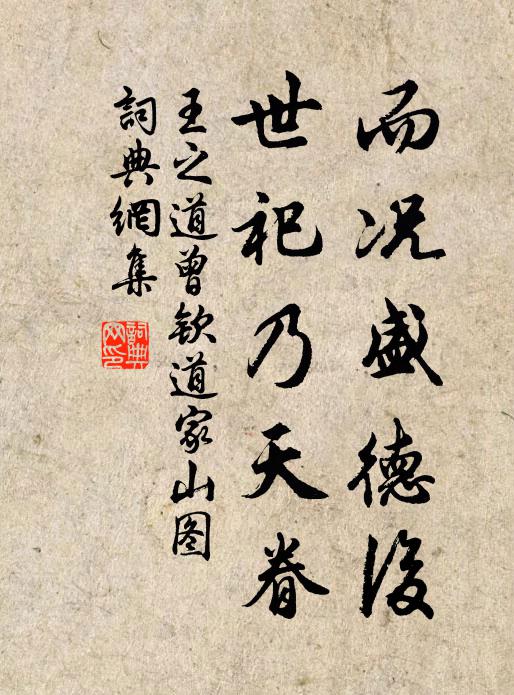 而况盛德後
世祀乃天眷
王之道曾钦道家山图
詞典網集
詞典网印